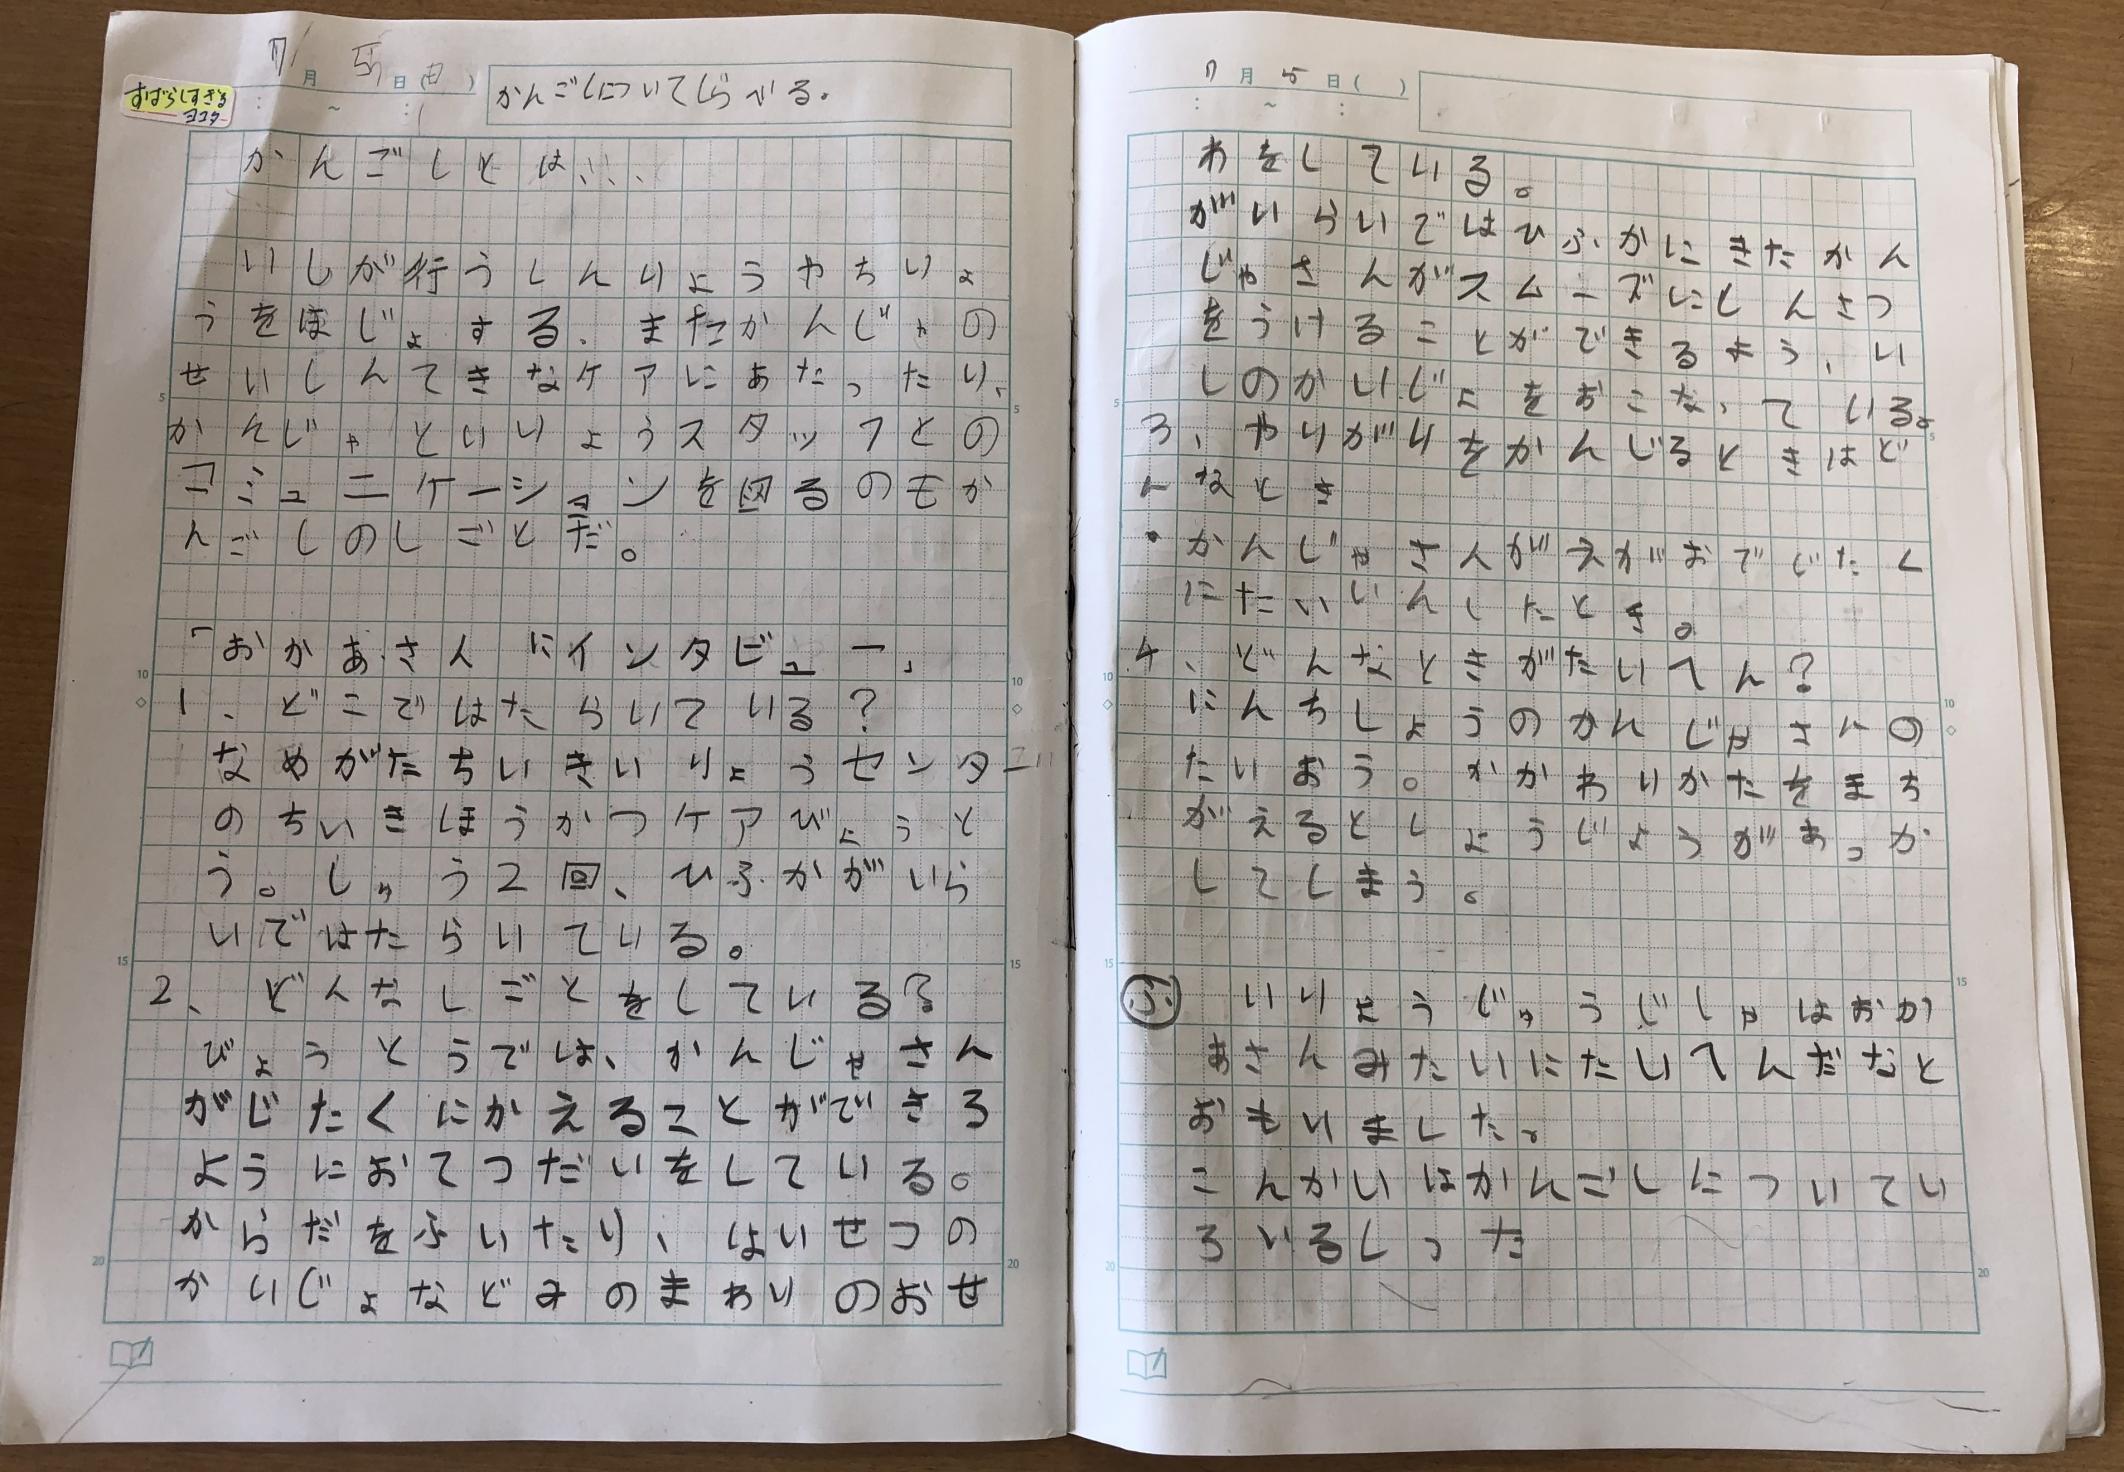 7月5日(日)
すばらしすぎる
ヨユウ
かんごしについてしらべる。
かんごしとは、、、
いしが行うしんりょうやちりょ
うをほじょする、またかんじゃの
せいしんてきなケアにあたったり、
かんじゃといりょうスタッフとの
コミュニケーションを図るのもか
んごしのしごとだ。
「おかあさんにインタビュー」
1、どこではたらいている?
なめがたちいきいりょうセンター
のちいきほうかつケアびょうと
う。しゅう2回、ひふかがいら
いではたらいている。
2、どんなしごとをしている?
びょうとうでは、かんじゃさん
がじたくにかえることができる
ようにおてつだいをしている。
からだをふいたり、はいせつの
かいじょなどみのまわりのおせ
7月5日( )
わをしている。
がいらいではひふかにきたかん
じゃさんがスムーズにしんさつ
をうけることができるよう、い
しのかいじょをおこなっている。
3、やりがいをかんじるときはど
んなとき
・かんじゃさんがえがおでじたく
にたいいんしたとき。
4、どんなときがたいへん?
にんちしょうのかんじゃさんの
たいおう。かかわりかたをまち
がえるとしょうじょうがあっか
してしまう。
ふ いりょうじゅうじしゃはおか
あさんみたいにたいへんだなと
おもいました。
こんかいはかんごしについてい
ろいるしった